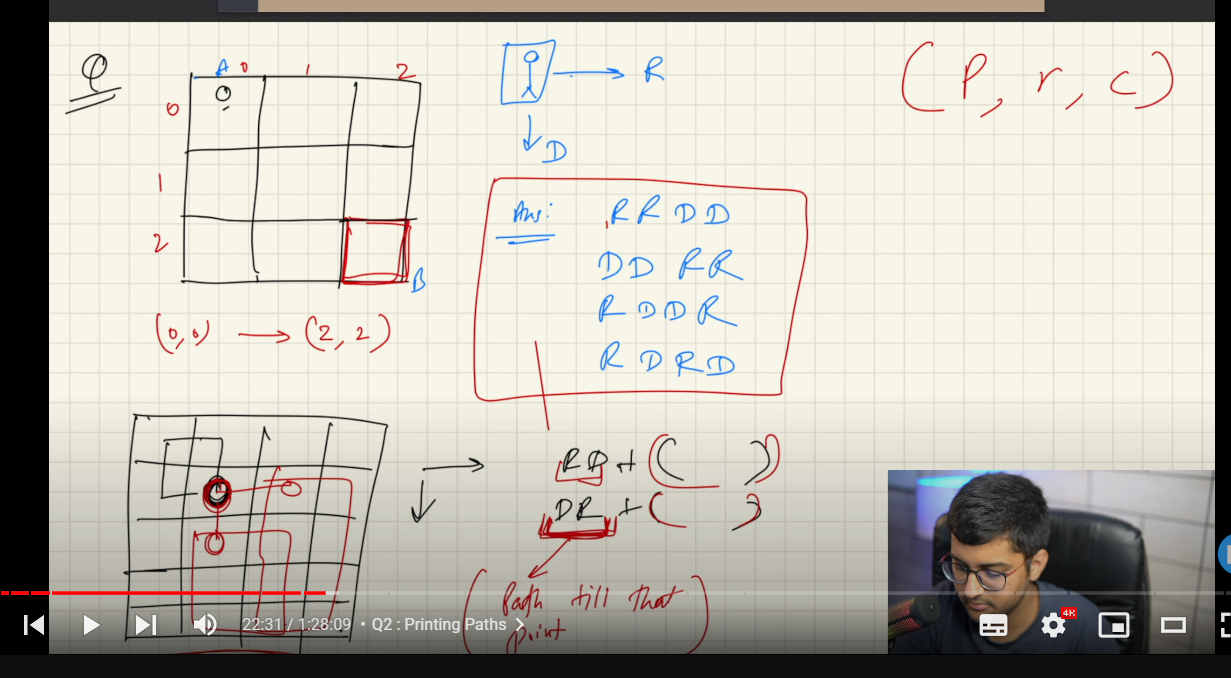 Q
A 0 1 2
0
1
2
B
(0,0) → (2, 2)
R
D
(P, r, c)
Ans: RRDD
DDRR
RDDR
RDRD
RD + ( )
DR + ( )
(Path till that
point)
22:31 / 1:28:09 • Q2 : Printing Paths >
4K